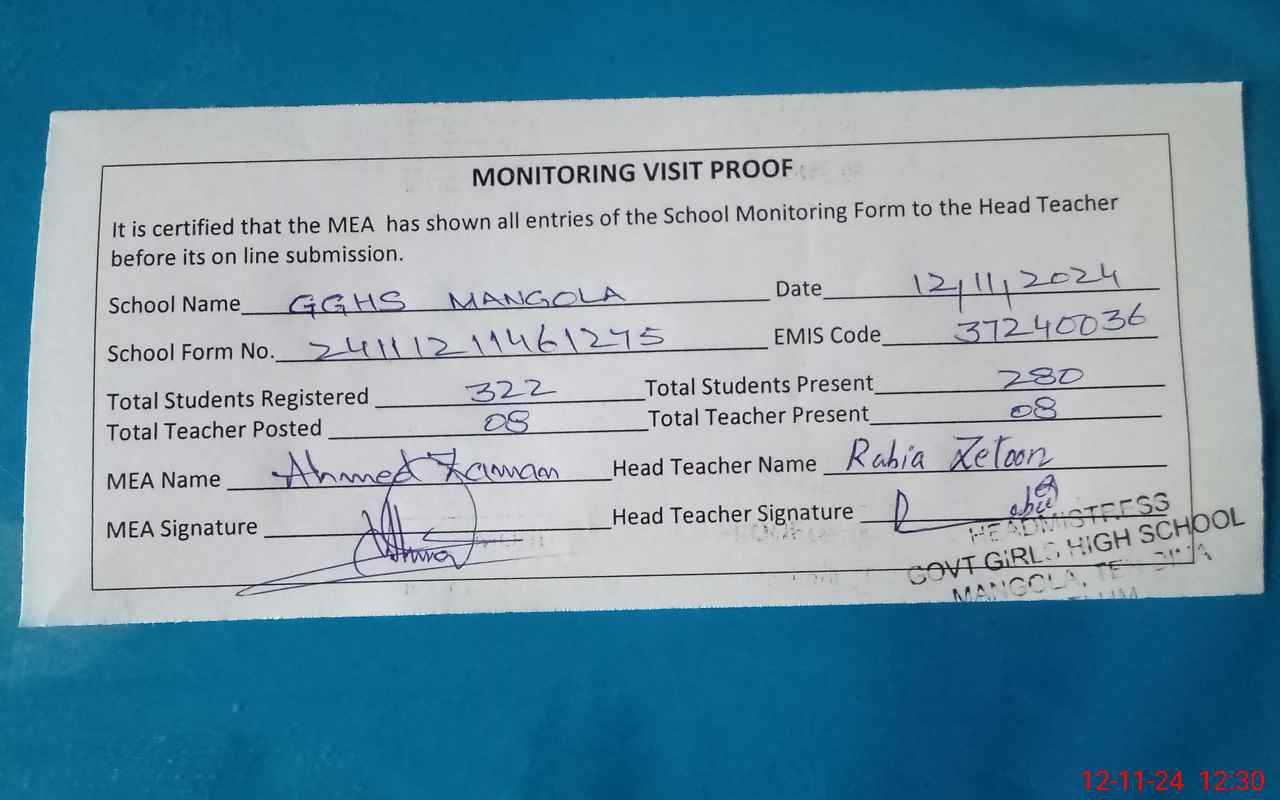 MONITORING VISIT PROOF
It is certified that the MEA has shown all entries of the School Monitoring Form to the Head Teacher
before its on line submission.
School Name GGHS MANGOLA Date 12,11,2024
School Form No. 24111211461275 EMIS Code 37240036
Total Students Registered 322 Total Students Present 280
Total Teacher Posted 08 Total Teacher Present 08
MEA Name Ahmed Zaman Head Teacher Name Rabia Zetoon
MEA Signature Head Teacher Signature
HEADMISTRESS
GOVT GIRLS HIGH SCHOOL
MANGOLA,
12-11-24 12:30